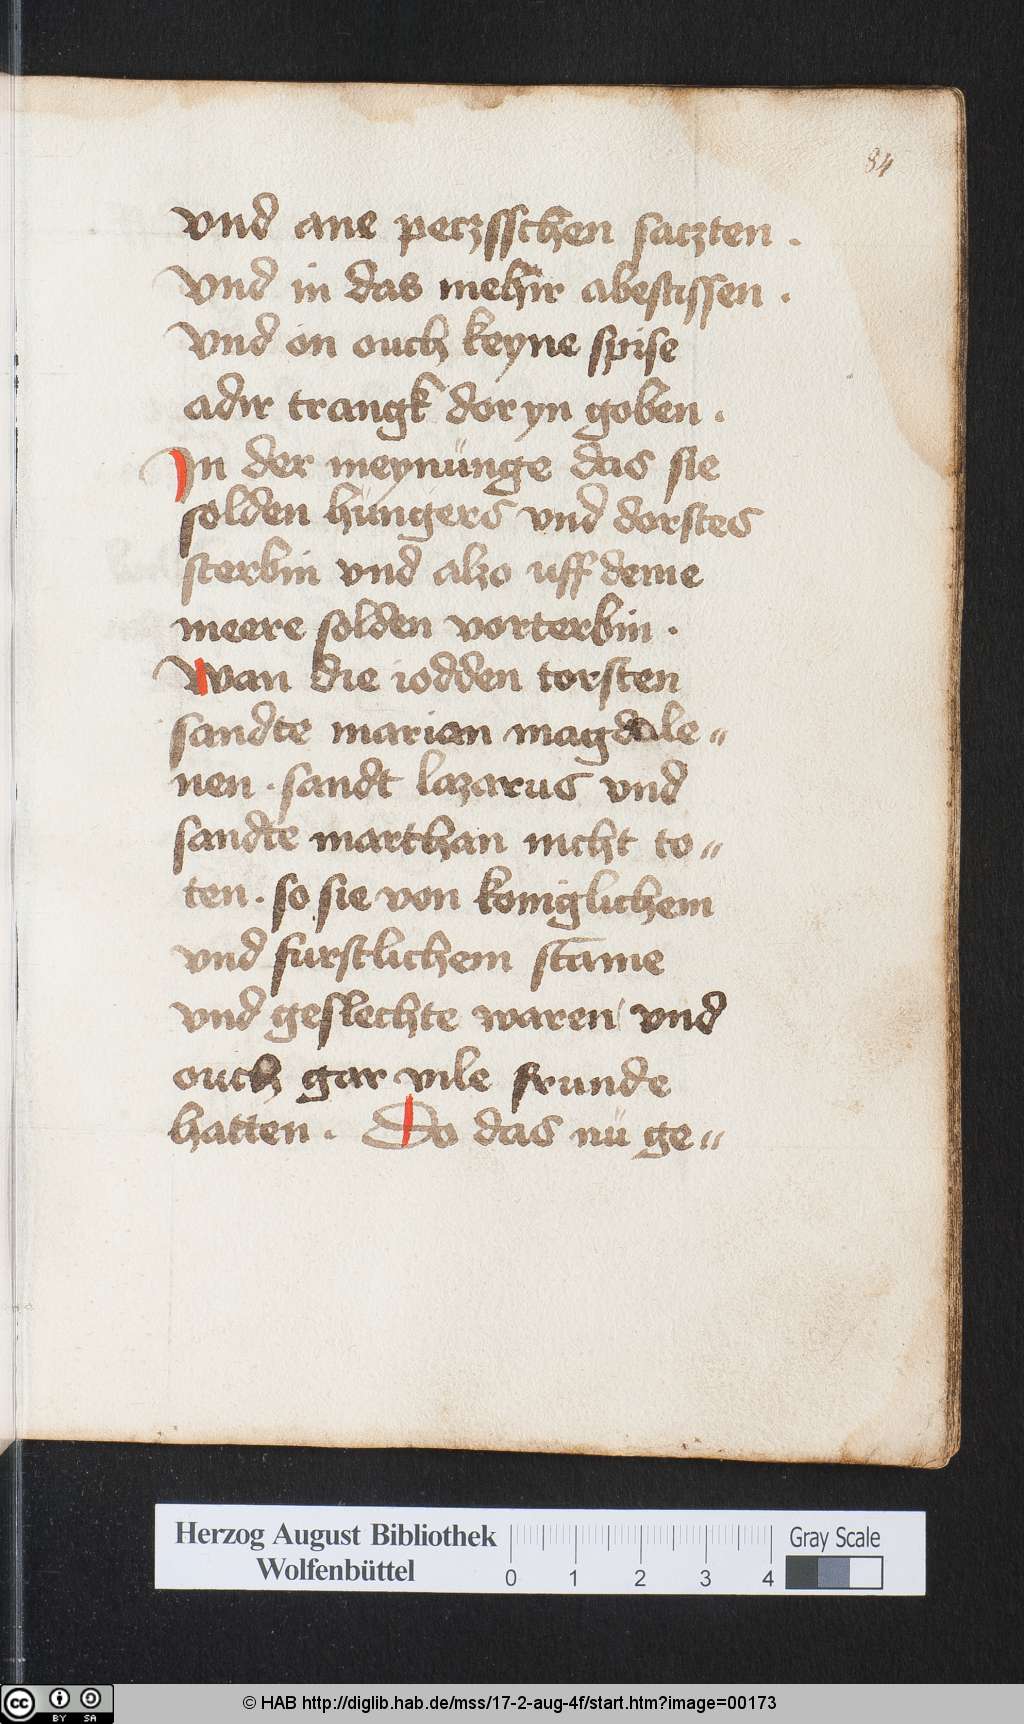 84
vnd ane peczsschen saczten .
Vnd in das mehir abestissen .
Vnd on ouch keyne spise
adir trangk dor yn goben .
In der meynünge das sie
solden hüngers vnd dorstes
sterbin vnd alzo uff deme
meere solden vorterbin .
Wan die iodden torsten
sandte marian magdale〃
nen . sandt lazarus vnd
sandte marthan nicht to〃
ten . so sie von koniglichem
vnd furstlichem stāme
vnd geslechte waren vnd
ouch gar vile frunde
hatten . Do das nü ge〃
Herzog August Bibliothek
Wolfenbüttel
0 1 2 3 4
Gray Scale
cc BY SA
© HAB http://diglib.hab.de/mss/17-2-aug-4f/start.htm?image=00173